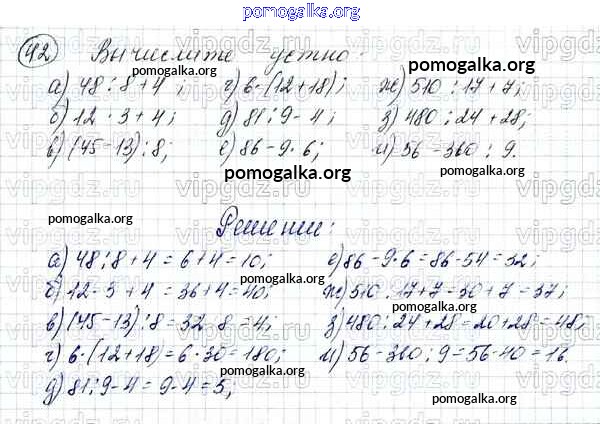 pomogalka.org
42 Вычислите устно:
а) 48 : 8 + 4 ; г) 6 · (12 + 18) ; ж) 510 : 17 + 7 ;
б) 12 · 3 + 4 ; д) 81 : 9 - 4 ; з) 480 : 24 + 28 ;
в) (45 - 13) : 8 ; е) 86 - 9 · 6 ; и) 56 - 360 : 9 .
Решение:
а) 48 : 8 + 4 = 6 + 4 = 10 ; е) 86 - 9 · 6 = 86 - 54 = 32 ;
б) 12 · 3 + 4 = 36 + 4 = 40 ; ж) 510 : 17 + 7 = 30 + 7 = 37 ;
в) (45 - 13) : 8 = 32 : 8 = 4 ; з) 480 : 24 + 28 = 20 + 28 = 48 ;
г) 6 · (12 + 18) = 6 · 30 = 180 ; и) 56 - 360 : 9 = 56 - 40 = 16 .
д) 81 : 9 - 4 = 9 - 4 = 5 ;
pomogalka.org
pomogalka.org
pomogalka.org
pomogalka.org
pomogalka.org
pomogalka.org
pomogalka.org
pomogalka.org
pomogalka.org
vipgdz.ru